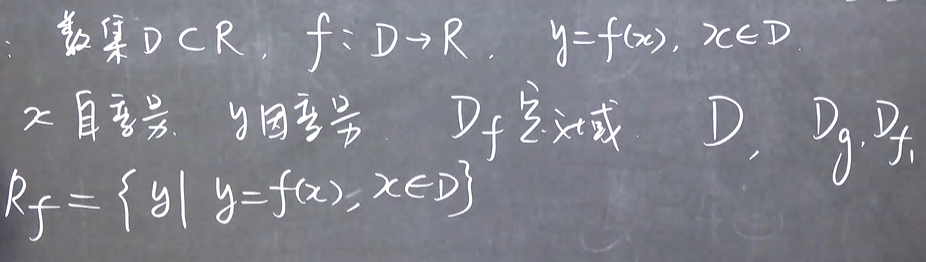 : 数集 D ⊂ R, f: D → R, y=f(x), x∈D.
x 自变量. y 因变量. D_f 定义域. D, D_g, D_{f_1}
R_f = { y | y=f(x), x∈D }